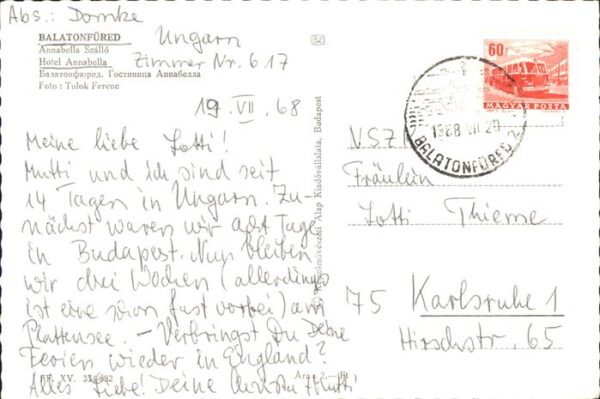 Abs.: Domke
BALATONFÜRED
Annabella Szálló
Hotel Annabella
Балатонфюред. Гостиница Аннабелла
Foto: Tulok Ferenc
Ungarn
Zimmer Nr. 617
SZ
60f
MAGYAR POSTA
1968 VII 20
BALATONFÜRED 2
19. VII. 68
Meine liebe Lotti!
Mutti und ich sind seit
14 Tagen in Ungarn. Zu-
nächst waren wir acht Tage
in Budapest. Nun bleiben
wir drei Wochen (allerdings
ist eine schon fast vorbei) am
Plattensee. – Verbringst Du Deine
Ferien wieder in England?
Alles Liebe! Deine Christa + Mutti
Képzőművészeti Alap Kiadóvállalata, Budapest
NSZK
Fräulein
Lotti Thieme
75 Karlsruhe 1
Hirschstr. 65
XV.